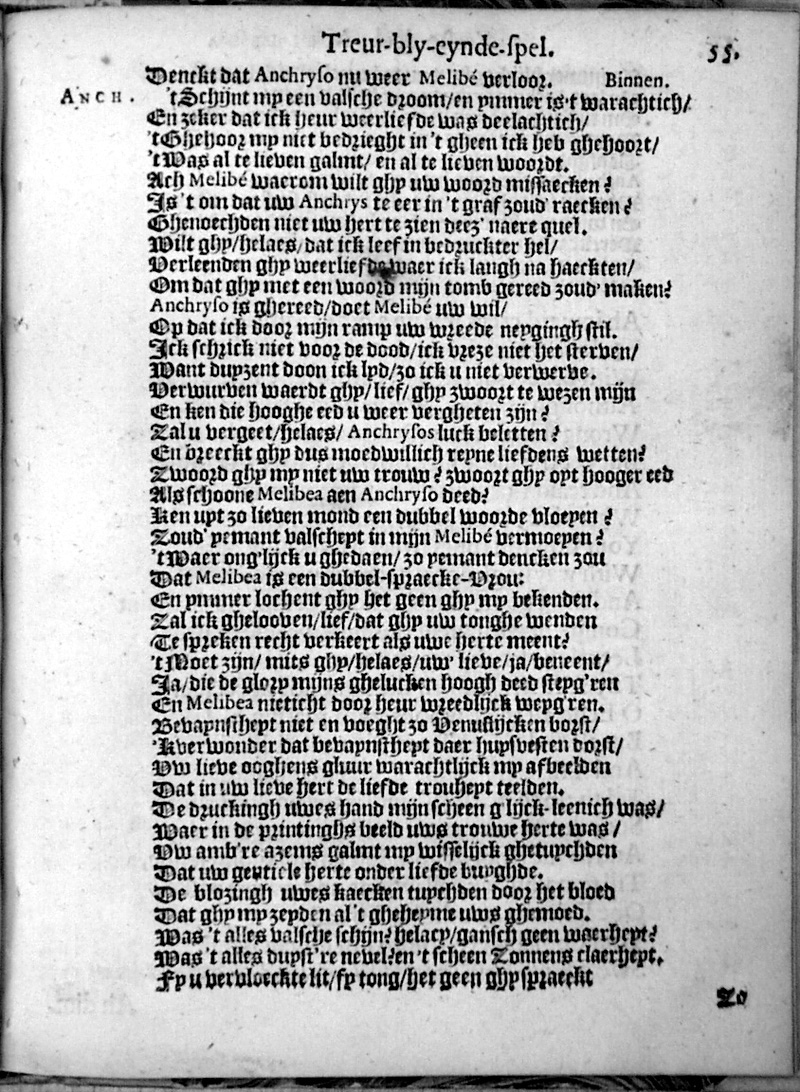 Treur-bly-eynde-spel. 55.
Denckt dat Anchryso nu weer Melibé verloor. Binnen.
ANCH. 't Schijnt my een valsche droom/ en ymmer is 't warachtich/
En zeker dat ick heur weerliefde was deelachtich/
't Ghehoor my niet bedrieght in 't gheen ick heb ghehoort/
't Was al te lieven galmt/ en al te lieven woordt.
Ach Melibé waerom wilt ghy uw woord missaecken?
Is 't om dat uw Anchrys te eer in 't graf zoud' raecken?
Ghenoechden niet uw hert te zien deez' naere quel.
Wilt ghy/helaes/dat ick leef in bedruckter hel/
Verleenden ghy weerliefde waer ick langh na haeckten/
Om dat ghy met een woord mijn tomb gereed zoud' maken?
Anchryso is ghereed/doet Melibé uw wil/
Op dat ick door mijn ramp uw wreede neygingh stil.
Ick schrick niet voor de dood/ick vreze niet het sterven/
Want duyzent doon ick lyd/zo ick u niet verwerve.
Verwurven waerdt ghy/lief/ghy zwoort te wezen mijn
En ken die hooghe eed u weer vergheten zijn?
Zal u vergeet/helaes/ Anchrysos luck beletten?
En breeckt ghy dus moedwillich reyne liefdens wetten?
Zwoord ghy my niet uw trouw? zwoort ghy opt hooger eed
Als schoone Melibea aen Anchryso deed?
Ken uyt zo lieven mond een dubbel woorde vloeyen?
Zoud' yemant valscheyt in mijn Melibé vermoeyen?
't Waer ong'lijck u ghedaen/ zo yemant dencken zou
Dat Melibea is een dubbel-spraecke-Vrou:
En ymmer lochent ghy het geen ghy my bekenden.
Zal ick ghelooven/lief/dat ghy uw tonghe wenden
Te spreken recht verkeert als uwe herte meent?
't Moet zijn/ mits ghy/helaes/uw' lieve/ja/veneent/
Ja/die de glory mijns ghelucken hoogh deed steyg'ren
En Melibea nieticht door heur wreedlijck weyg'ren.
Bevaynstheyt niet en voeght zo Venuslijcken borst/
'Kverwonder dat bevaynstheyt daer huysvesten dorst/
Vw lieve ooghens gluur warachtlijck my afbeelden
Dat in uw lieve hert de liefde trouheyt teelden.
De druckingh uwes hand mijn scheen g'lijck-leenich was/
Waer in de printinghs beeld uws trouwe herte was/
Vw amb're azems galmt my wisselijck ghetuychden
Dat uw gentiele herte onder liefde buyghde.
De blozingh uwes kaecken tuychden door het bloed
Dat ghy my zeyden al 't gheheyme uws ghemoed.
Was 't alles valsche schijn? helacy/gansch geen waerheyt?
Was 't alles duyst're nevel? en 't scheen Zonnens claerheyt.
Fy u vervloeckte lit/fy tong/het geen ghy spraeckt
Zo